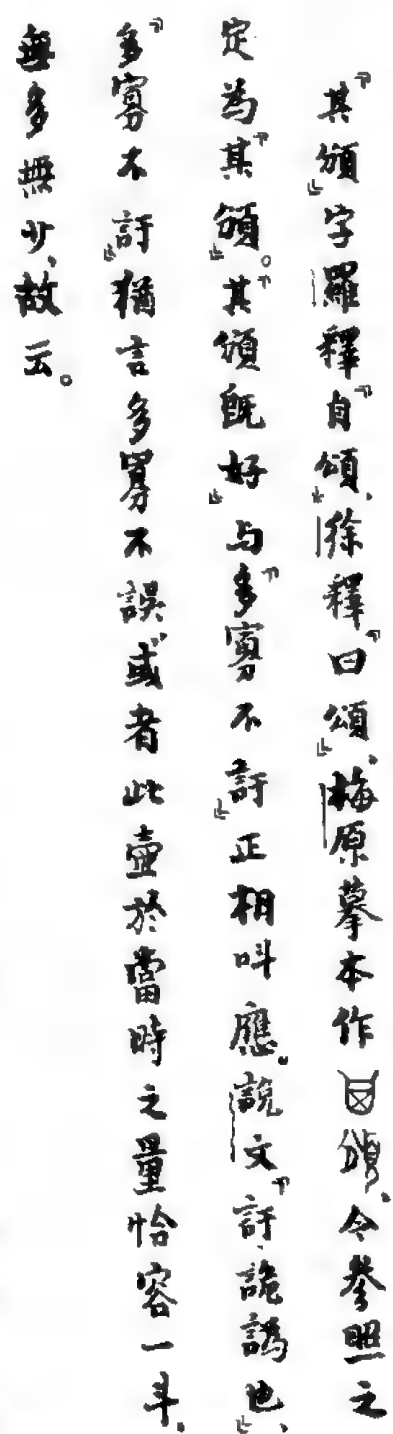 『其頒』字羅釋『自頌』、徐釋『曰頌』、梅原摹本作頒、今參照之
定為『其頒』。『其頒既好』与『多寡不訏』正相叫應。說文『訏、詭譌也』、
『多寡不訏』猶言多寡不誤、或者此壺於當時之量恰容一斗、
無多無少、故云。